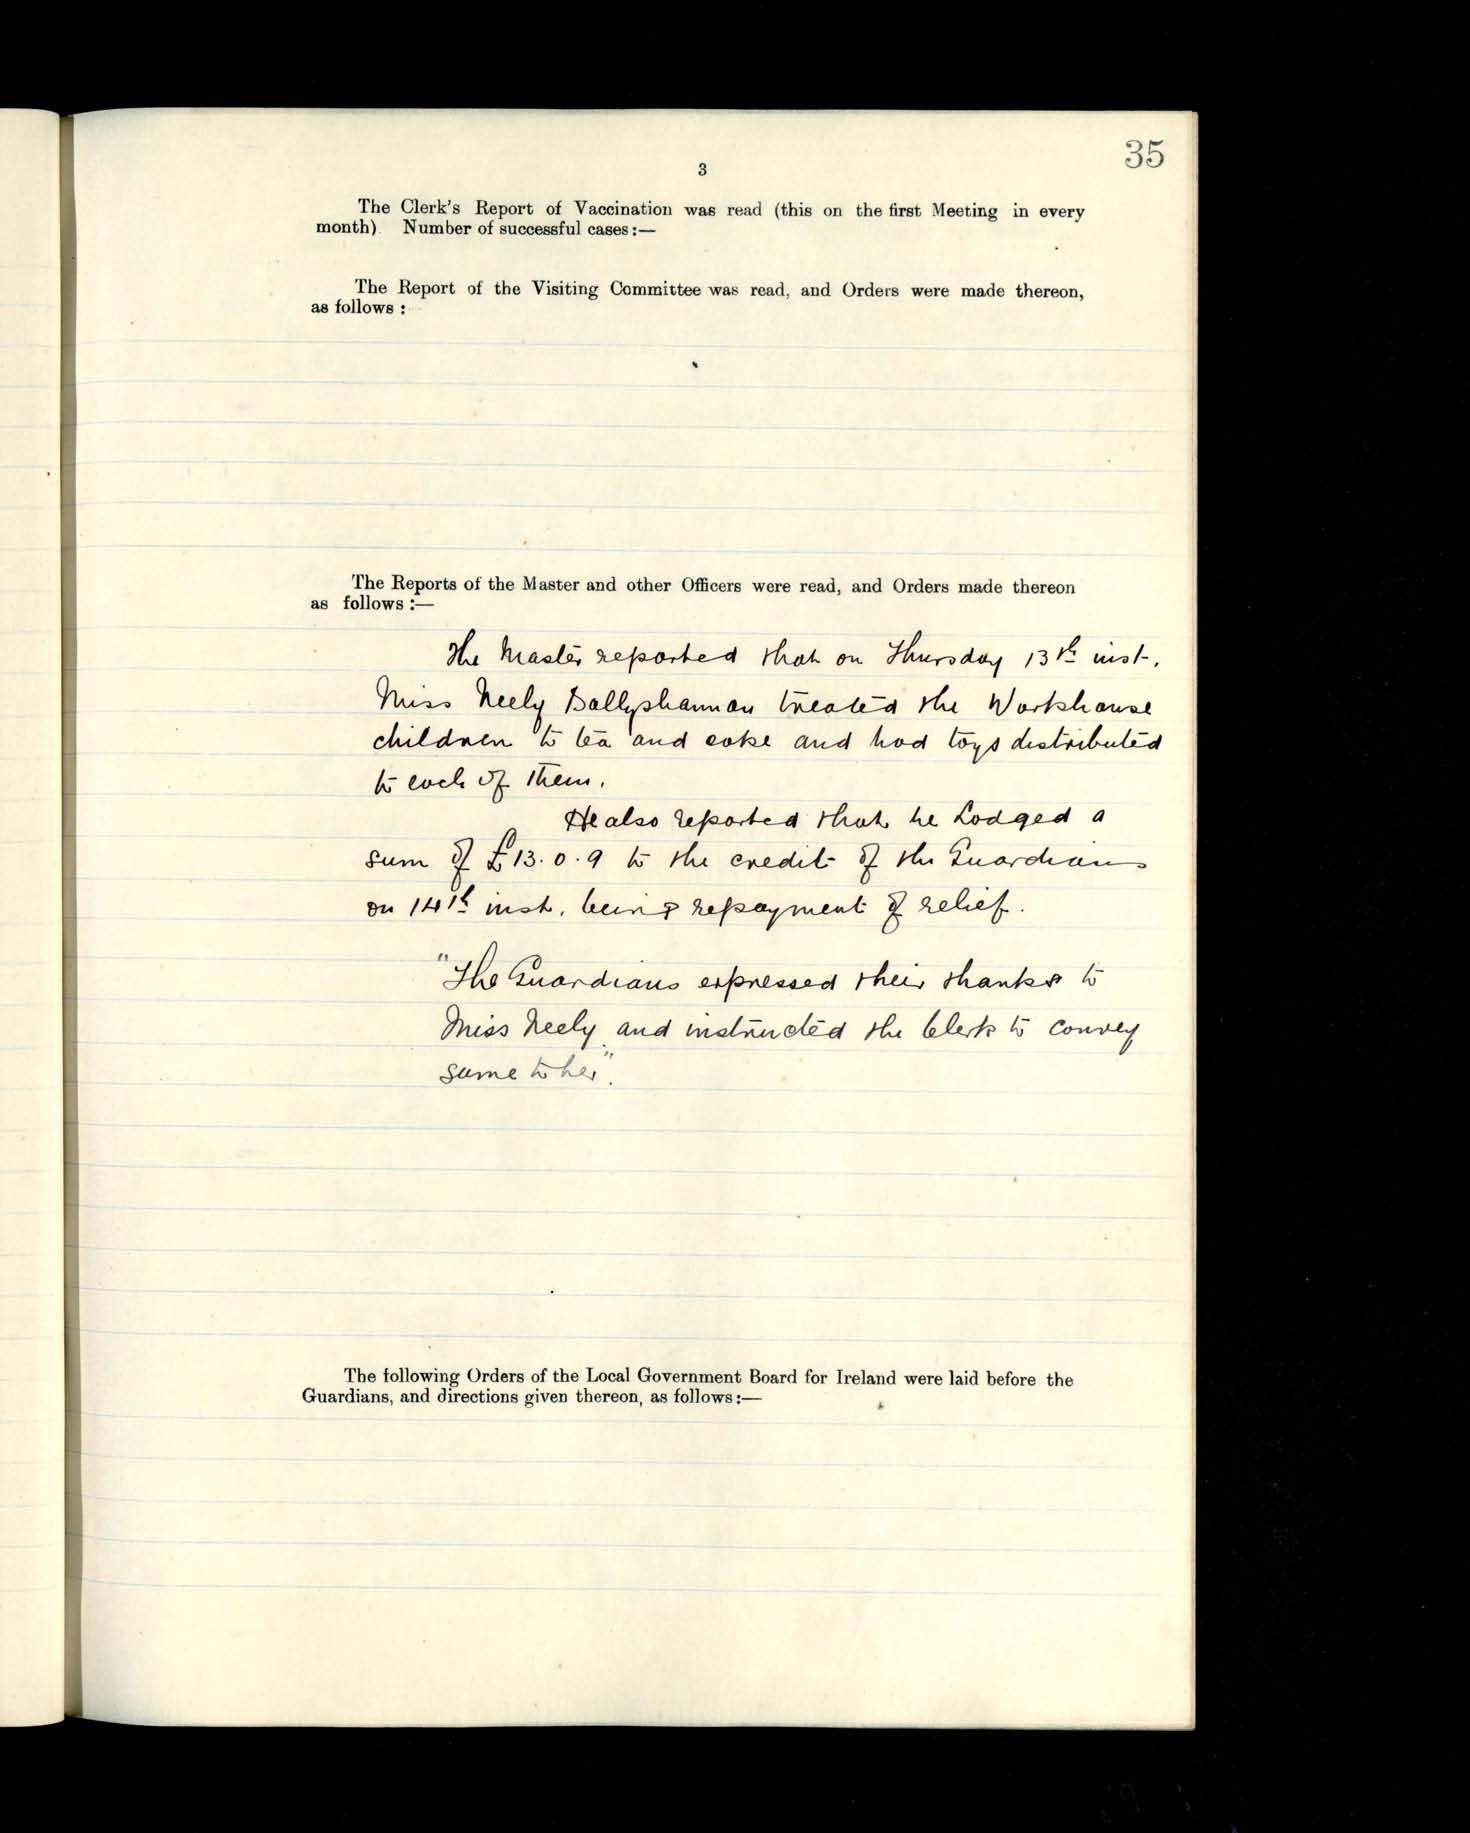 35
3
The Clerk's Report of Vaccination was read (this on the first Meeting in every
month) Number of successful cases:—
The Report of the Visiting Committee was read, and Orders were made thereon,
as follows :
The Reports of the Master and other Officers were read, and Orders made thereon
as follows :—
The Master reported that on Thursday 13th inst.
Miss Neely Ballyshannon treated the Workhouse
children to tea and cake and had toys distributed
to each of them.
He also reported that he Lodged a
sum of £13.0.9 to the credit of the Guardians
on 14th inst. being repayment of relief.
"The Guardians expressed their thanks to
Miss Neely and instructed the Clerk to convey
same to her".
The following Orders of the Local Government Board for Ireland were laid before the
Guardians, and directions given thereon, as follows:—